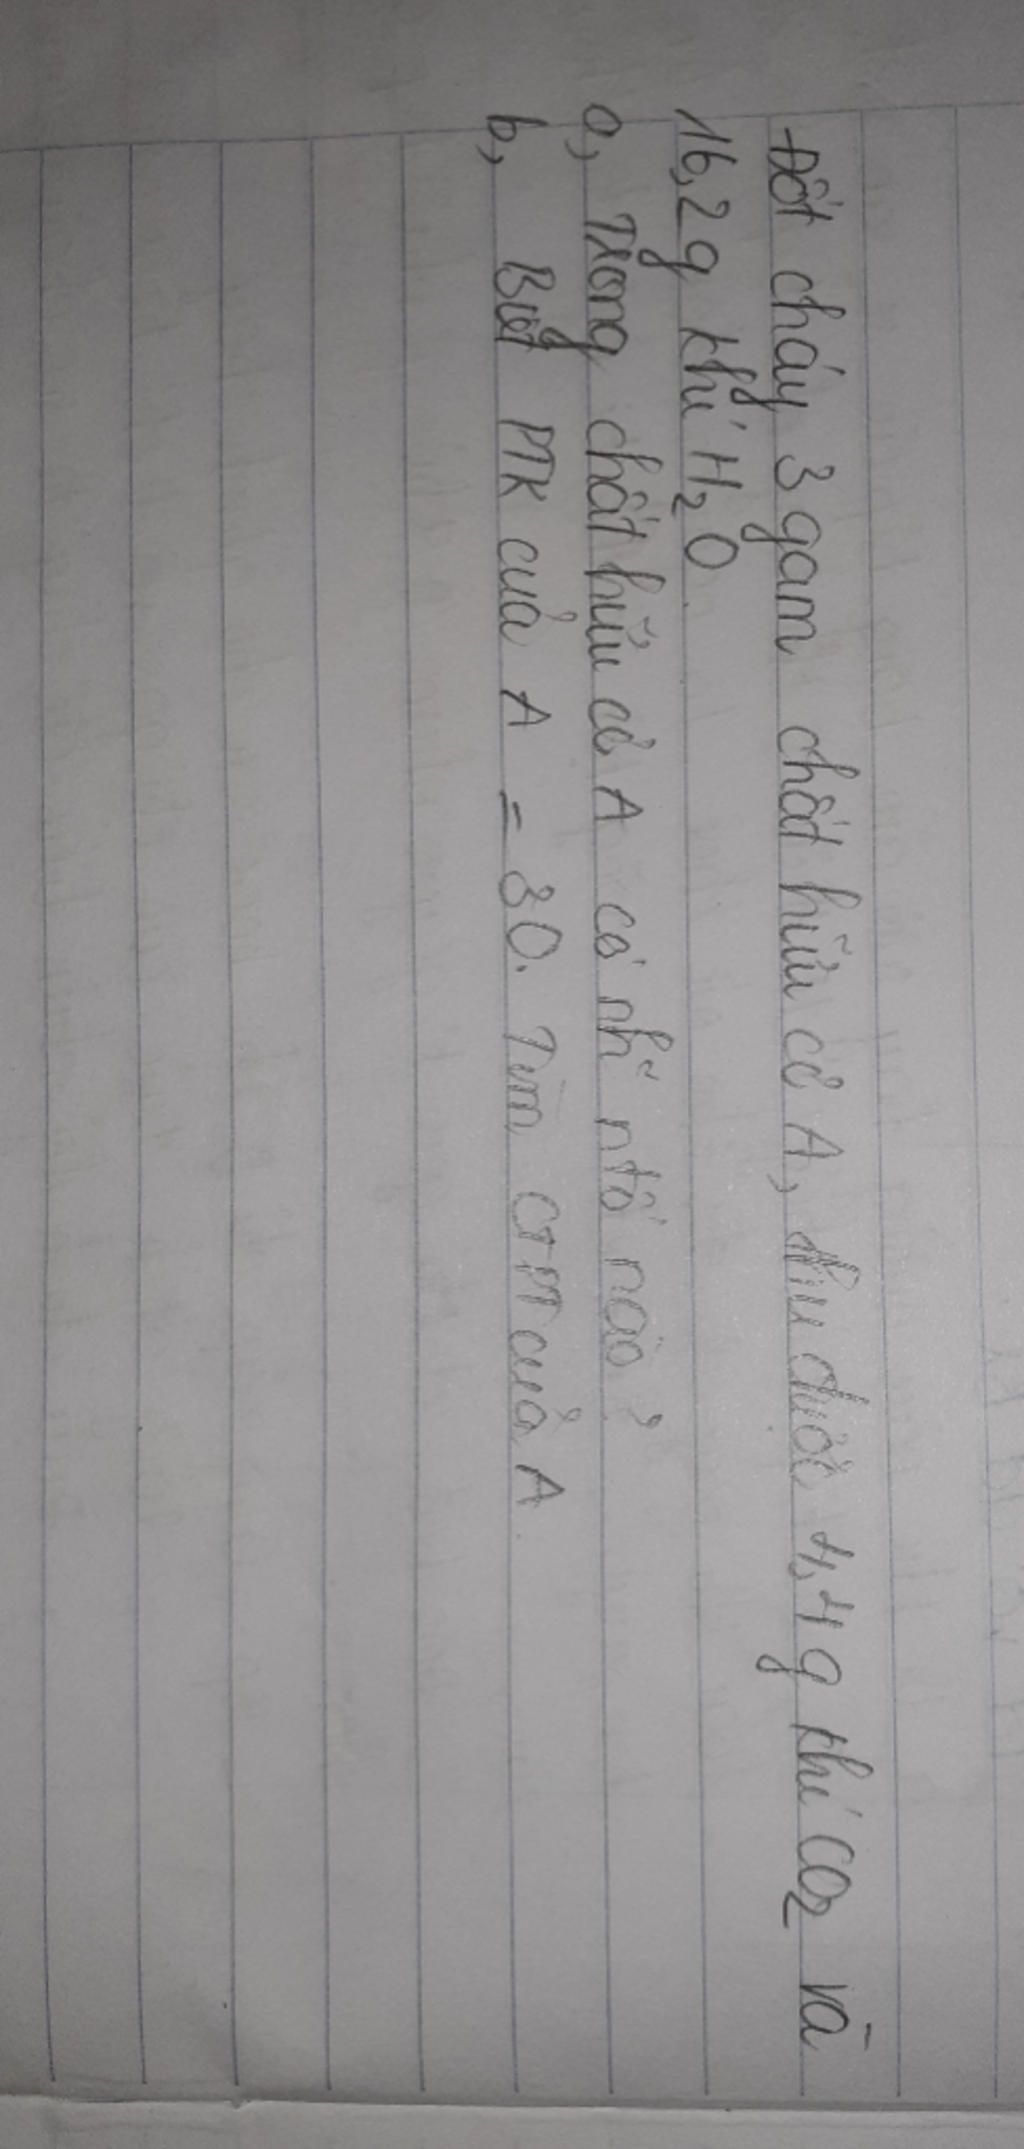 Đốt cháy 3 gam chất hữu cơ A, thu được 4,4g khí CO2 và
16,2g khí H2O.
a, Trong chất hữu cơ A có nh~ ntố nào?
b, Biết PTK của A = 30. Tìm CTPT của A.